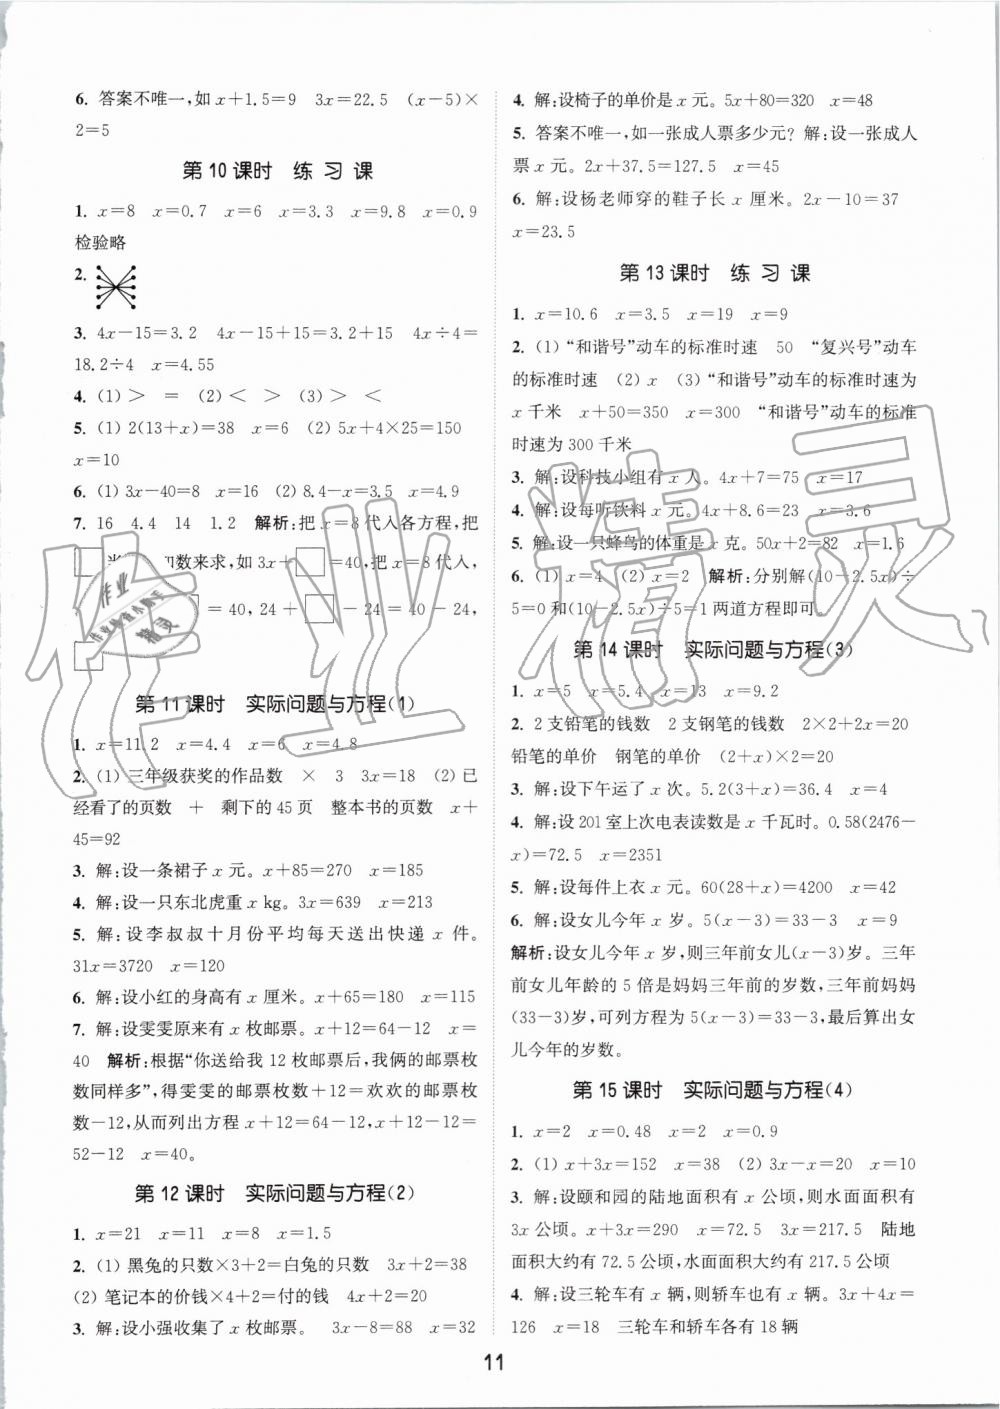 6. 答案不唯一,如 x+1.5=9　3x=22.5　(x-5)×
2=5
第 10 课时　练 习 课
1. x=8　x=0.7　x=6　x=3.3　x=9.8　x=0.9
检验略
2.
3. 4x-15=3.2　4x-15+15=3.2+15　4x÷4=
18.2÷4　x=4.55
4. (1) >　=　(2) <　>　(3) >　<
5. (1) 2(13+x)=38　x=6　(2) 5x+4×25=150
x=10
6. (1) 3x-40=8　x=16　(2) 8.4-x=3.5　x=4.9
7. 16　4.4　14　1.2　解析:把 x=8 代入各方程,把
□ 当 知数来求,如 3x+□=40,把 x=8 代入,
□=40,24+□-24=40-24,
□
第 11 课时　实际问题与方程(1)
1. x=11.2　x=4.4　x=6　x=4.8
2. (1) 三年级获奖的作品数　×　3　3x=18　(2) 已
经看了的页数　+　剩下的 45 页　整本书的页数　x+
45=92
3. 解:设一条裙子 x 元。x+85=270　x=185
4. 解:设一只东北虎重 x kg。3x=639　x=213
5. 解:设李叔叔十月份平均每天送出快递 x 件。
31x=3720　x=120
6. 解:设小红的身高有 x 厘米。x+65=180　x=115
7. 解:设雯雯原来有 x 枚邮票。x+12=64-12　x=
40　解析:根据“你送给我 12 枚邮票后,我俩的邮票枚
数同样多”,得雯雯的邮票枚数+12=欢欢的邮票枚
数-12,从而列出方程 x+12=64-12,x+12-12=
52-12　x=40。
第 12 课时　实际问题与方程(2)
1. x=21　x=11　x=8　x=1.5
2. (1) 黑兔的只数×3+2=白兔的只数　3x+2=38
(2) 笔记本的价钱×4+2=付的钱　4x+2=20
3. 解:设小强收集了 x 枚邮票。　3x-8=88　x=32
4. 解:设椅子的单价是 x 元。5x+80=320　x=48
5. 答案不唯一,如一张成人票多少元? 解:设一张成人
票 x 元。2x+37.5=127.5　x=45
6. 解:设杨老师穿的鞋子长 x 厘米。2x-10=37
x=23.5
第 13 课时　练 习 课
1. x=10.6　x=3.5　x=19　x=9
2. (1) “和谐号”动车的标准时速　50　“复兴号”动车
的标准时速　(2) x　(3) “和谐号”动车的标准时速为
x 千米　x+50=350　x=300　“和谐号”动车的标准
时速为 300 千米
3. 解:设科技小组有 x 人。4x+7=75　x=17
4. 解:设每听饮料 x 元。4x+8.6=23　x=3.6
5. 解:设一只蜂鸟的体重是 x 克。50x+2=82　x=1.6
6. (1) x=4　(2) x=2　解析:分别解(10-2.5x)÷
5=0 和(10-2.5x)÷5=1 两道方程即可。
第 14 课时　实际问题与方程(3)
1. x=5　x=5.4　x=13　x=9.2
2. 2 支铅笔的钱数　2 支钢笔的钱数　2×2+2x=20
铅笔的单价　钢笔的单价　(2+x)×2=20
3. 解:设下午运了 x 次。5.2(3+x)=36.4　x=4
4. 解:设 201 室上次电表读数是 x 千瓦时。0.58(2476-
x)=72.5　x=2351
5. 解:设每件上衣 x 元。60(28+x)=4200　x=42
6. 解:设女儿今年 x 岁。5(x-3)=33-3　x=9
解析:设女儿今年 x 岁,则三年前女儿(x-3)岁。三年
前女儿年龄的 5 倍是妈妈三年前的岁数,三年前妈妈
(33-3)岁,可列方程为 5(x-3)=33-3,最后算出女
儿今年的岁数。
第 15 课时　实际问题与方程(4)
1. x=2　x=0.48　x=2　x=0.9
2. (1) x+3x=152　x=38　(2) 3x-x=20　x=10
3. 解:设颐和园的陆地面积有 x 公顷,则水面面积有
3x 公顷。x+3x=290　x=72.5　3x=217.5　陆地
面积大约有 72.5 公顷,水面面积大约有 217.5 公顷
4. 解:设三轮车有 x 辆,则轿车也有 x 辆。3x+4x=
126　x=18　三轮车和轿车各有 18 辆
11
作业精灵